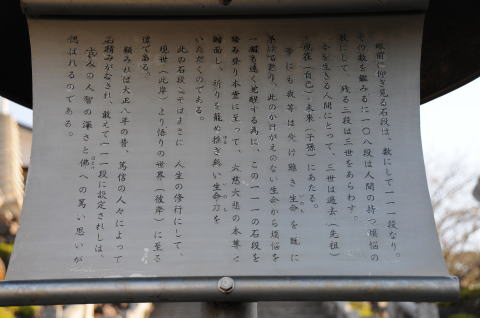 眼前に仰ぎ見る石段は、数にして一一一段なり。
その数を鑑みるに一〇八段は人間の持つ煩悩の
数にして、残る三段は三世をあらわす。
今を生きる人間にとって、三世は過去（先祖）
・現在（自己）・未来（子孫）にあたる。
幸にも我等は受け難き生命を既に
享けており、此のかけがえのない生命から煩悩を
一趣も遠く
為に、この一一一の石段を
踏み登り本堂に至って、大慈大悲の本尊と
対面し、祈りを籠め
無い生命力を
いただくのである。
此の石段こそはまさに 人生の修行にして、
現世（此岸）より悟りの世界（彼岸）に至る
道である。
顧みれば大正八年の昔、篤信の人々によって
石積みがなされ、敢えて一一一段に設定されしは、
古への人智の深さと佛への篤い思いが
ほとけ
偲ばれるのである。